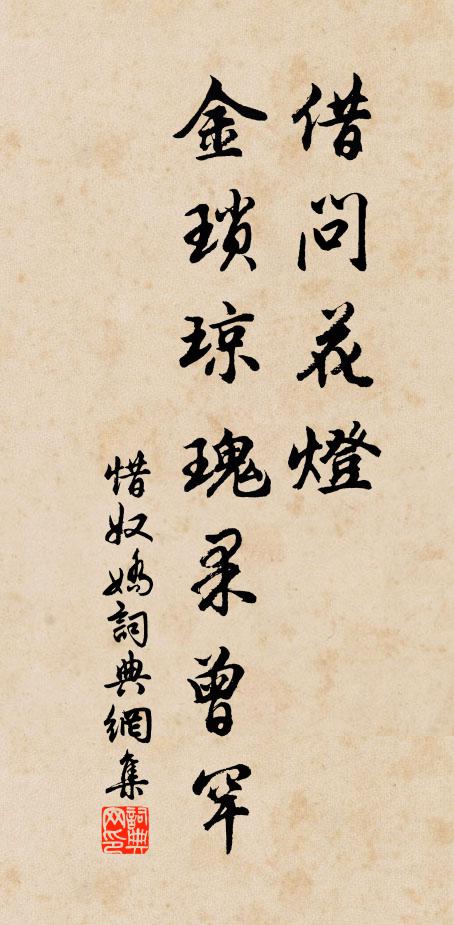 借問花燈
金瑣琼瑰果曾罕
惜奴嬌詞典網集
詞典网印